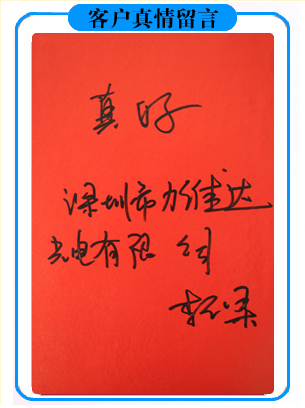 客户真情留言
真好
深圳市力佳达
光电有限公司